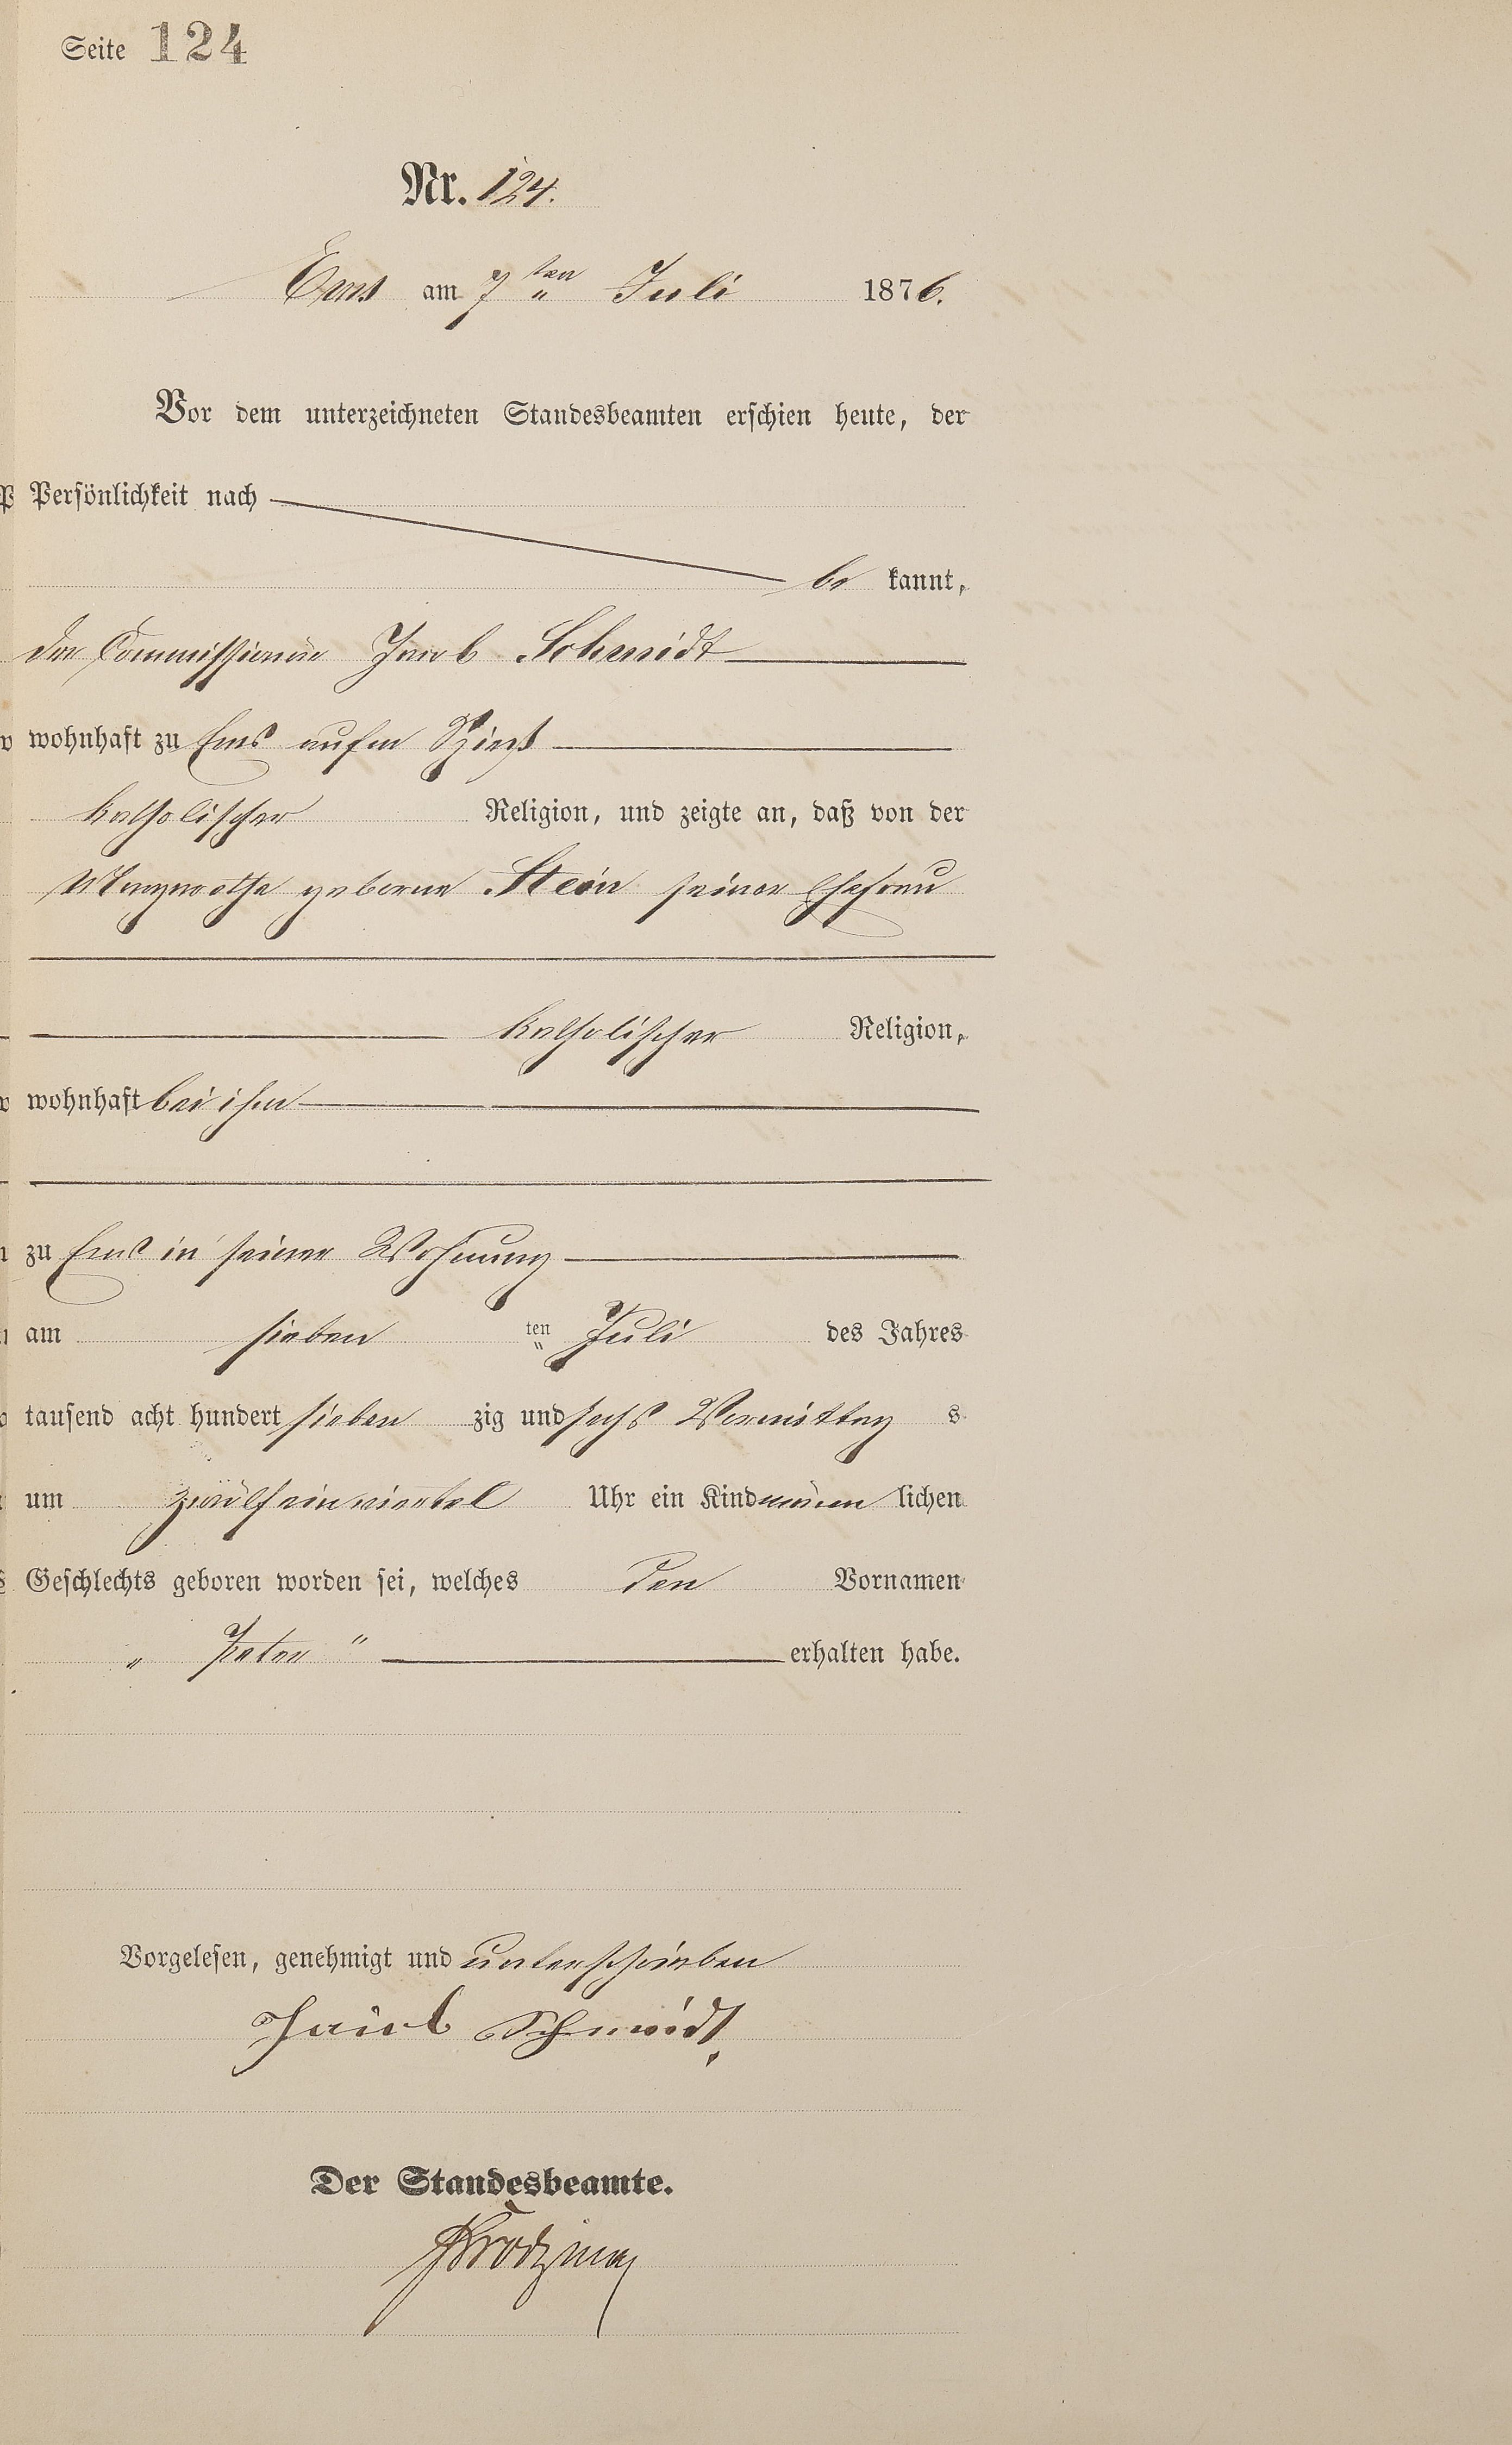 Seite 124
Nr. 124.
Ems am 7ten Juli 1876.
Vor dem unterzeichneten Standesbeamten erschien heute, der
Persönlichkeit nach
be kannt,
der Commissionär Jacob Schmidt
wohnhaft zu Ems aufm Spieß
katholischer Religion, und zeigte an, daß von der
Margarethe geborene Stein seiner Ehefrau
katholischer Religion,
wohnhaft bei ihm
zu Ems in seiner Wohnung
am sieben ten Juli des Jahres
tausend acht hundert sieben zig und sechs Vormittag s
um zwölf ein viertel Uhr ein Kind männ lichen
Geschlechts geboren worden sei, welches den Vornamen
„ Peter “ erhalten habe.
Vorgelesen, genehmigt und unterschrieben
Jacob Schmidt.
Der Standesbeamte.